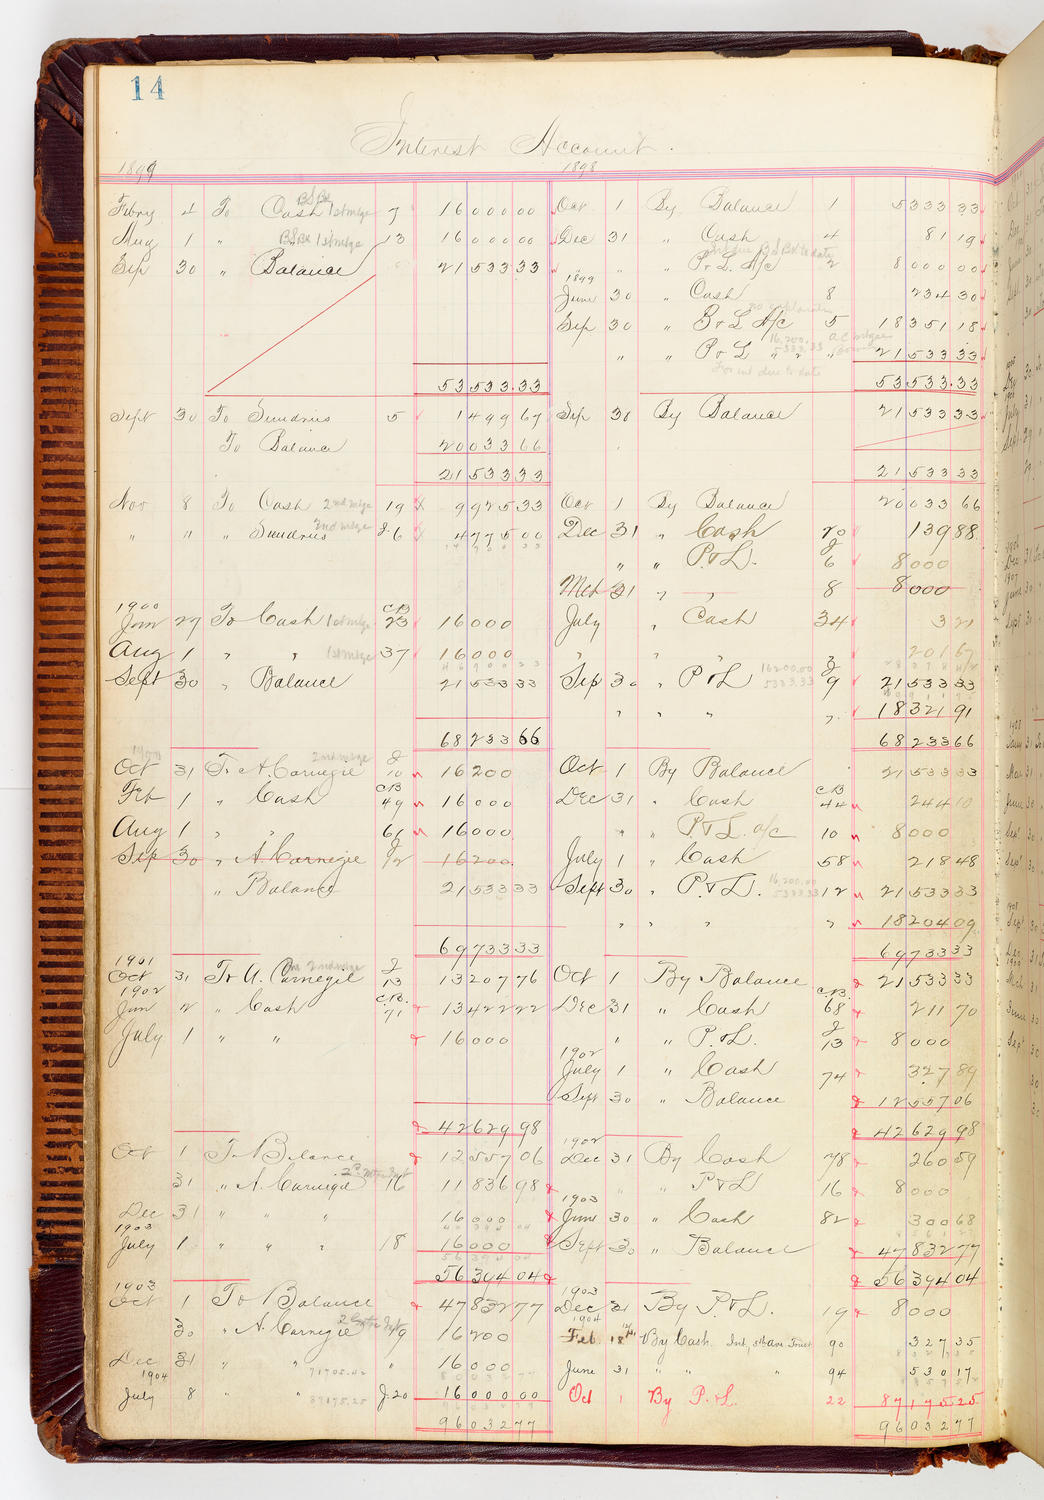 14
Interest Account.
1899 1898
Febry 4 To Cash 1st mtge 7 16000 00 Oct 1 By Balance 1 5333 33
Aug 1 " " B S Bk 1st mtge 13 16000 00 Dec 31 " Cash 4 81 19
Sep 30 " Balance 21533 33 " " P & L A/c 2 8000 00
1899
June 30 " Cash 8 234 30
Sep 30 " P & L A/c 5 18351 18
" " P & L " " " 21533 33
16,200. 5333.33
For int due to date
53533.33 53533.33
Sept 30 To Sundries 5 1499 67 Sep 30 By Balance 21533 33
To Balance 20033 66
21533 33 21533 33
Nov 8 To Cash 2nd mtge 19 9925 33 Oct 1 By Balance 20033 66
" " " Sundries 2nd mtge J. 6 4775 00 Dec 31 " Cash 20 139 88
" " P. & L. J 6 8000
Mch 31 " " 8 8000
1900
Jan 27 To Cash 1st mtge CB 23 16000 July " Cash 34 3 21
Aug 1 " " 1st mtge 37 16000 " " " 201 67
Sept 30 " Balance 21533 33 Sep 30 " P & L 16200.00 5333.33 J 9 21533 33
" " " " 18321 91
68233 66 68233 66
1900
Oct 31 To A. Carnegie 2nd mtge J 10 16200 Oct 1 By Balance 21533 33
Feb 1 " Cash CB 49 16000 Dec 31 " Cash CB 44 244 10
Aug 1 " " 61 16000 " " P & L. a/c 10 8000
Sep 30 " A. Carnegie J 12 16200 July 1 " Cash 58 218 48
" Balance 21533 33 Sept 30 " P & L. 16,200.00 5333.33 12 21533 33
" " " " 18204 09
69733 33 69733 33
1901
Oct 31 To A. Carnegie 2nd mtge J 13 13207 76 Oct 1 By Balance 21533 33
1902
Jan 2 " Cash C.B. 71 13422 22 Dec 31 " Cash C.B. 68 211 70
July 1 " " 16000 " " P. & L. J 13 8000
1902
July 1 " Cash 74 327 89
Sept 30 " Balance 12557 06
42629 98 42629 98
1902
Oct 1 To Balance 12557 06 Dec 31 By Cash 78 260 59
31 " A. Carnegie 16 11836 98 " " P & L 16 8000
1903
Dec 31 " " " 16000 June 30 " Cash 82 300 68
1903
July 1 " " " 18 16000 Sept 30 " Balance 47832 77
56394 04 56394 04
1903 1903
Oct 1 To Balance 47832 77 Dec 31 By P & L. 19 8000
1904
30 " A. Carnegie 19 16200 Feb 18 By Cash Int. 5th ave. Trust 90 327 35
Dec 31 " " " 16000 June 31 " " " 94 530 17
71705.02
1904
July 8 " " J. 20 16000 00 Oct 1 By P. & L. 22 87175 25
87175.25
96032 77 96032 77